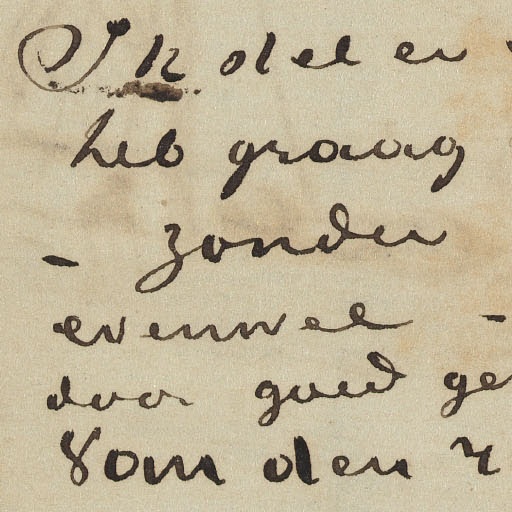 Ik deler
heb graag
- zonder
evenwel -
door goed ge
om den